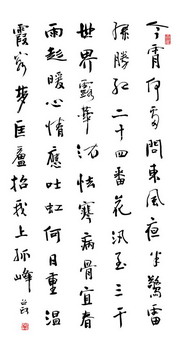 今宵何處問東風夜半驚雷
勝紅二十四番花汛至三千
世界露華沾怯寒病骨宜春
雨起暖心情應吐虹何日重溫
霞客夢匡廬招我上孤峰